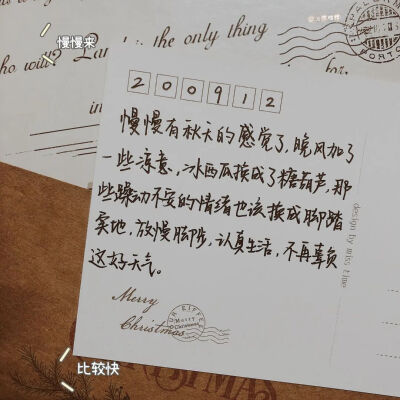 慢慢来
the only thing
2 0 0 9 1 2
慢慢有秋天的感觉了,晚风加了
一些凉意,冰西瓜换成了糖葫芦,那
些躁动不安的情绪也该换成脚踏
实地,放慢脚步,认真生活,不再辜负
这好天气。
design by artis time
Merry
Christmas
Merry
Christmas
比较快